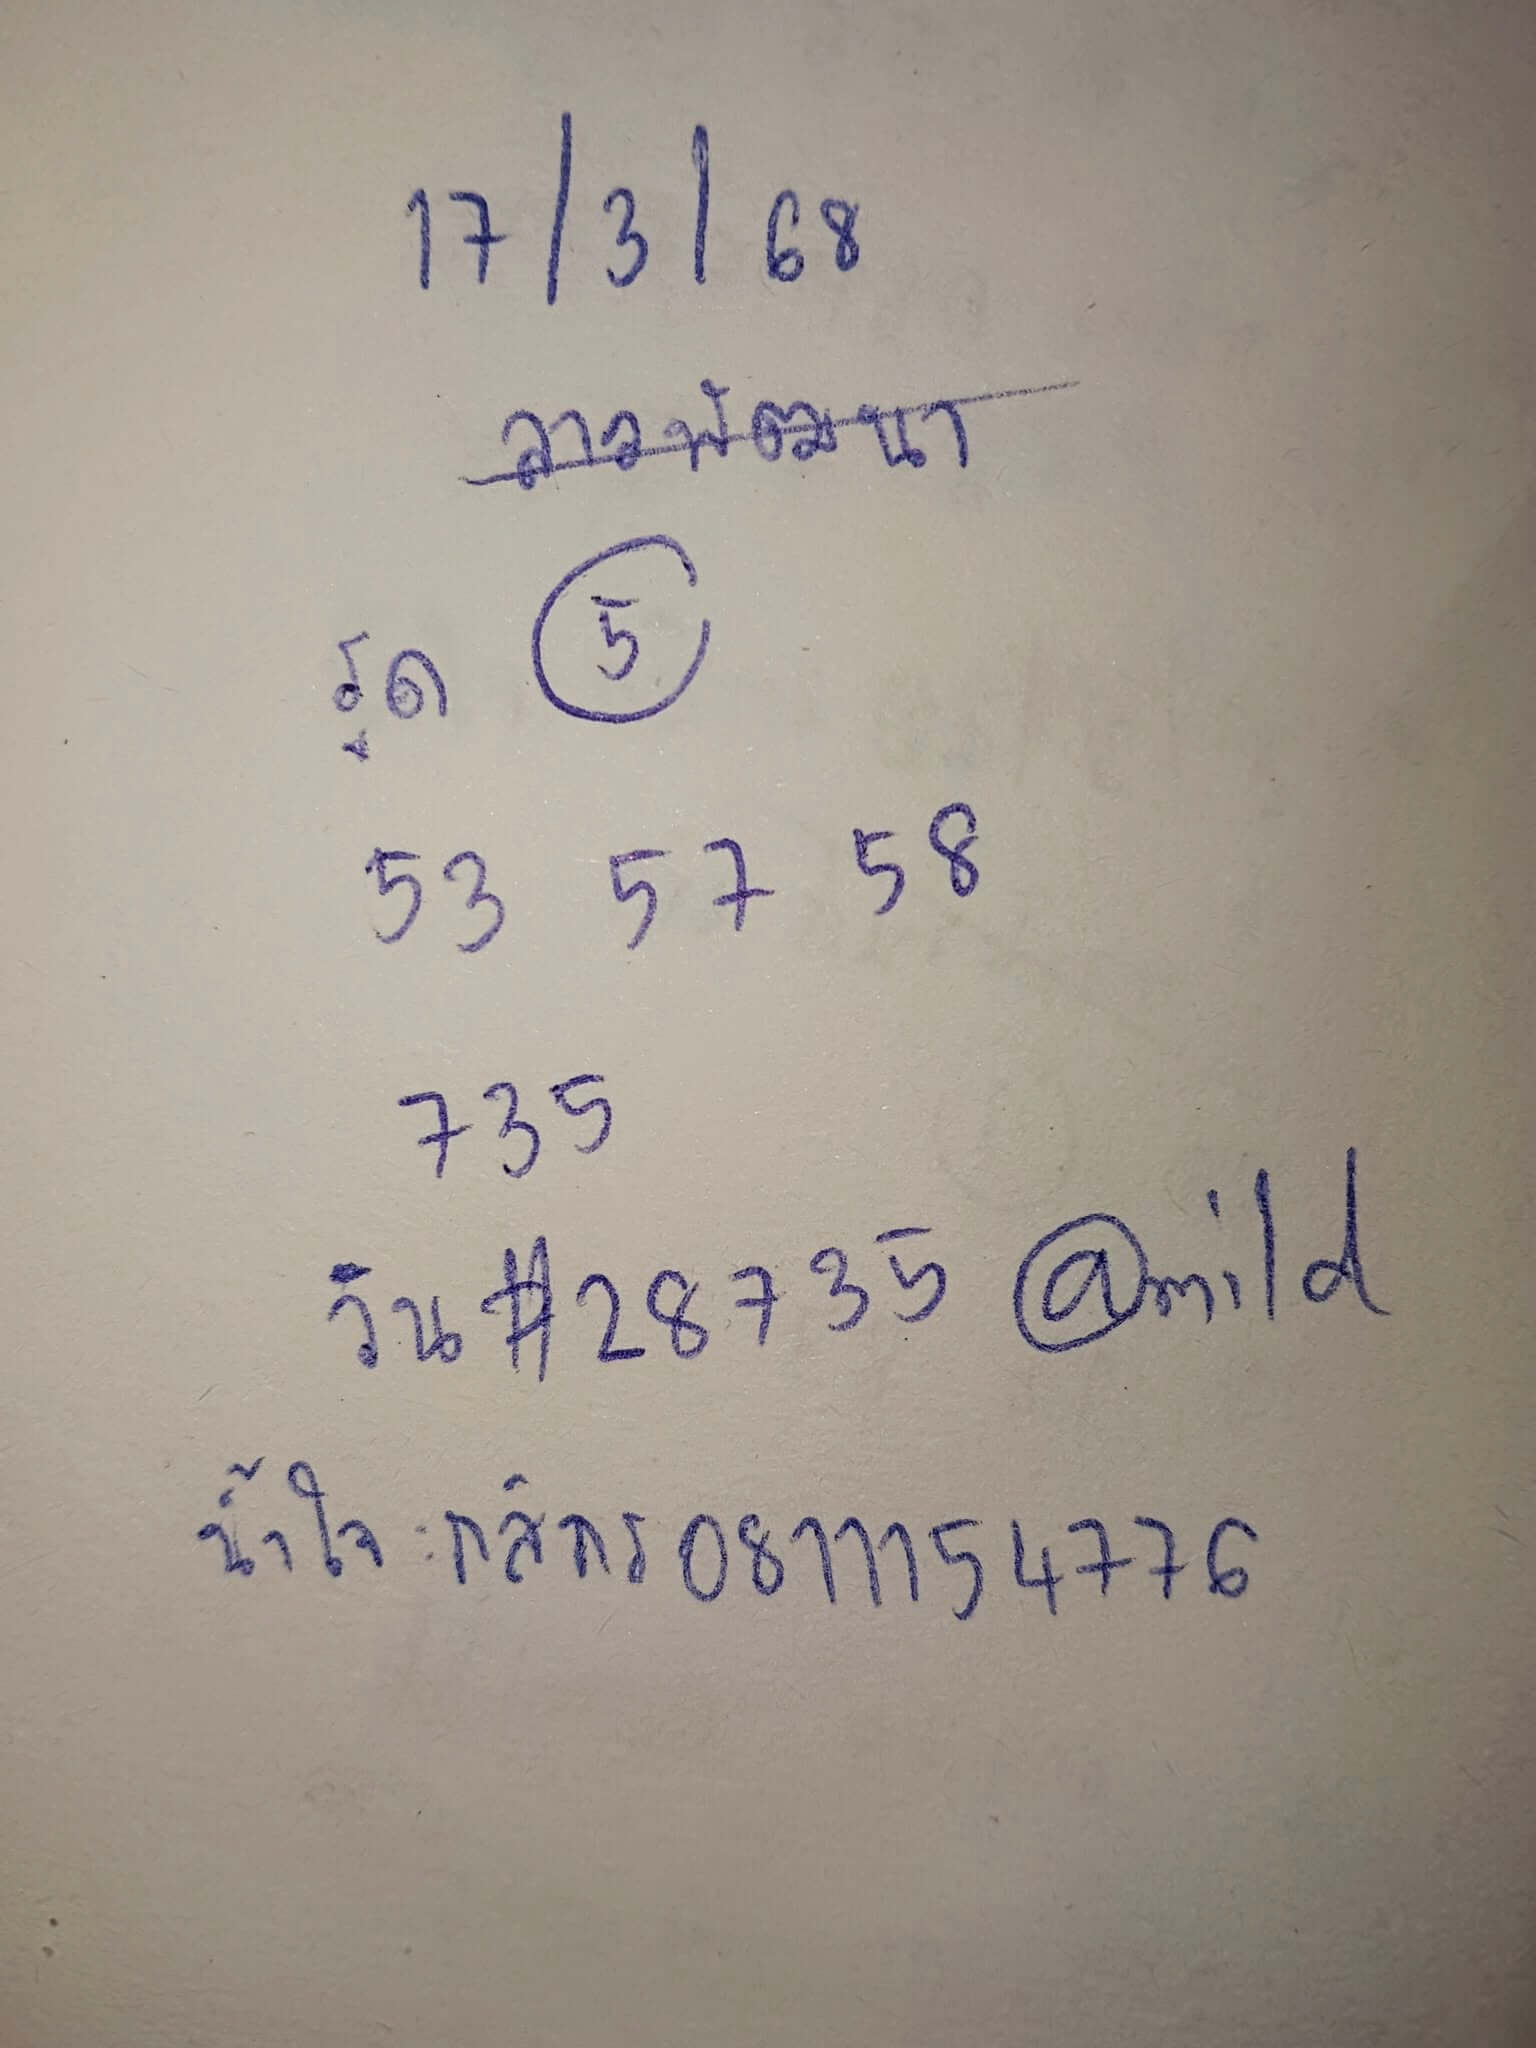 17/3/68
ลาวพัฒนา
รูด 5
53 57 58
735
วิน #28735 @mild
น้ำใจ : กสิกร 0811154776